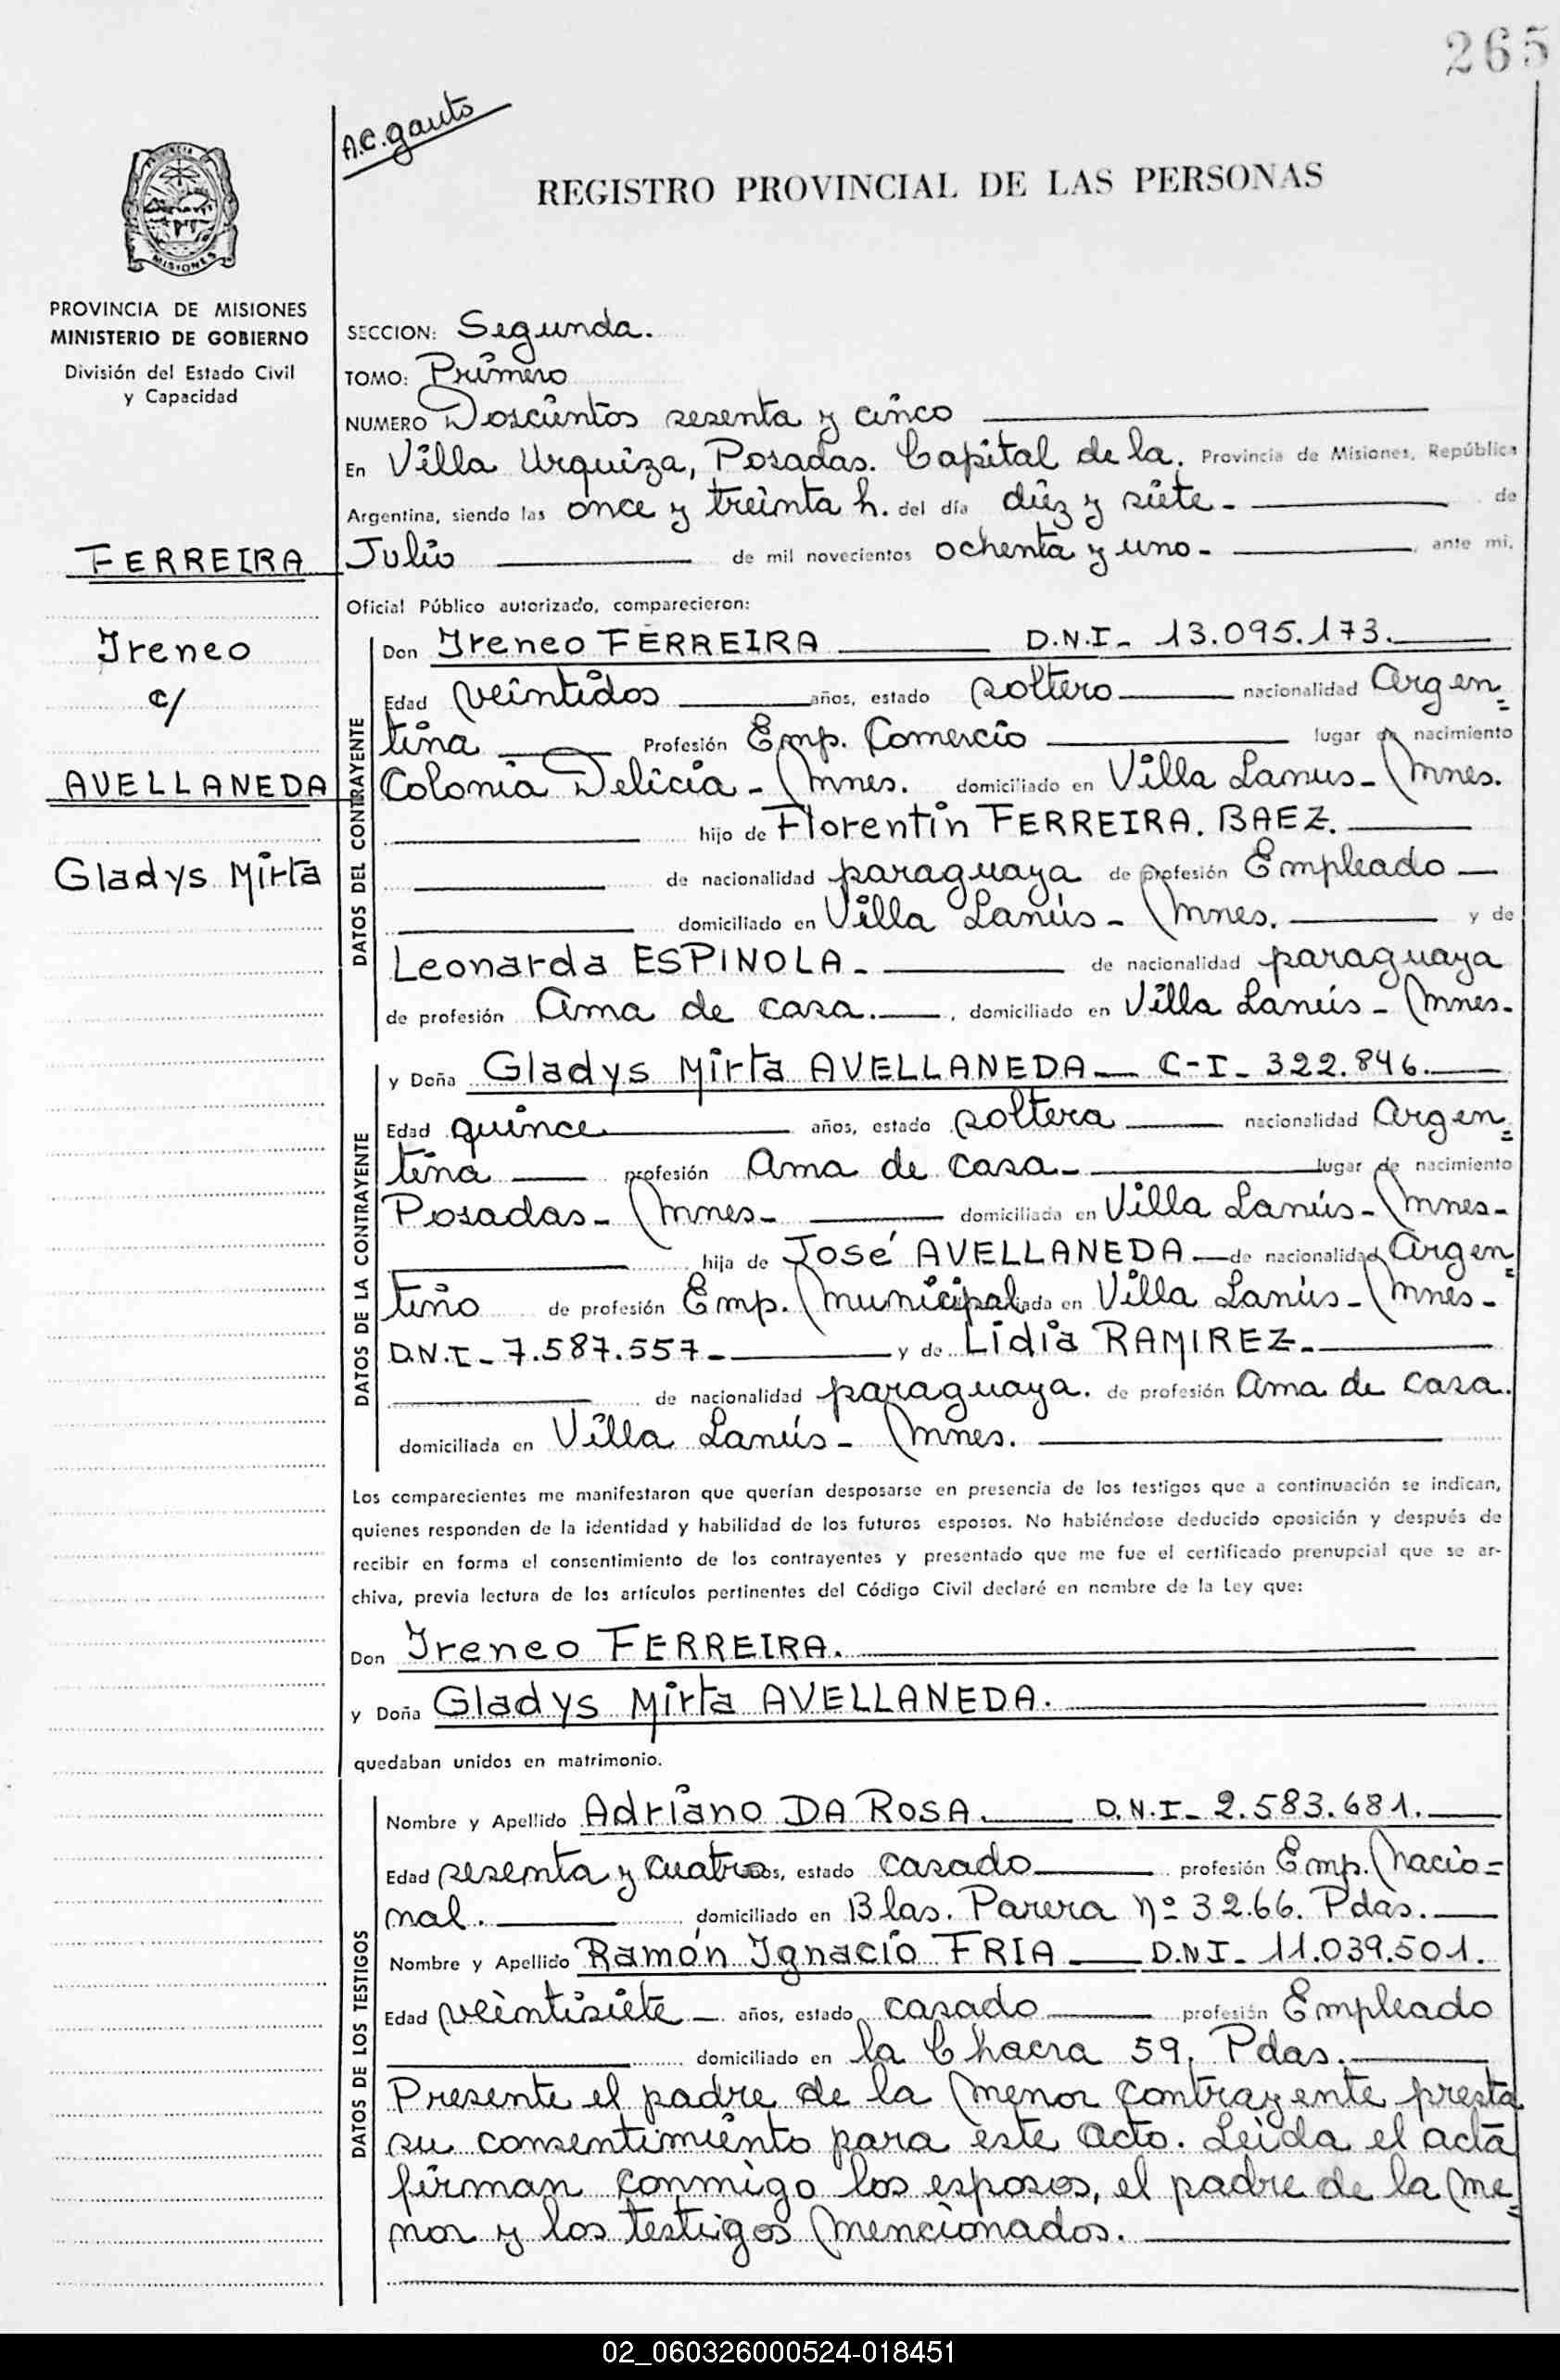 265
A.C. Gauto
REGISTRO PROVINCIAL DE LAS PERSONAS
PROVINCIA
MISIONES
PROVINCIA DE MISIONES
MINISTERIO DE GOBIERNO
División del Estado Civil
y Capacidad
FERREIRA
Ireneo
c/
AVELLANEDA
Gladys Mirta
SECCION: Segunda.
TOMO: Primero
NUMERO Doscientos sesenta y cinco
En Villa Urquiza, Posadas. Capital de la. Provincia de Misiones, República
Argentina, siendo las once y treinta h. del día diez y siete - de
Julio de mil novecientos ochenta y uno - ante mi,
Oficial Público autorizado, comparecieron:
DATOS DEL CONTRAYENTE
Don Ireneo FERREIRA D.N.I- 13.095.173.
Edad veintidos años, estado soltero nacionalidad Argen=
tina Profesión Emp. Comercio lugar de nacimiento
Colonia Delicia - Mnes. domiciliado en Villa Lanus - Mnes.
hijo de Florentin FERREIRA. BAEZ.
de nacionalidad paraguaya de profesión Empleado
domiciliado en Villa Lanús - Mnes. y de
Leonarda ESPINOLA - de nacionalidad paraguaya
de profesión Ama de casa. , domiciliado en Villa Lanús - Mnes.
DATOS DE LA CONTRAYENTE
y Doña Gladys Mirta AVELLANEDA - C-I- 322.846.
Edad quince años, estado soltera nacionalidad Argen=
tina profesión Ama de casa - lugar de nacimiento
Posadas - Mnes - domiciliada en Villa Lanús - Mnes -
hija de José AVELLANEDA de nacionalidad Argen=
tino de profesión Emp. Municipal en Villa Lanús - Mnes -
D.N.I- 7.587.557 - y de Lidia RAMIREZ.
de nacionalidad paraguaya. de profesión Ama de casa.
domiciliada en Villa Lanús - Mnes.
Los comparecientes me manifestaron que querían desposarse en presencia de los testigos que a continuación se indican,
quienes responden de la identidad y habilidad de los futuros esposos. No habiéndose deducido oposición y después de
recibir en forma el consentimiento de los contrayentes y presentado que me fue el certificado prenupcial que se ar-
chiva, previa lectura de los artículos pertinentes del Código Civil declaré en nombre de la Ley que:
Don Ireneo FERREIRA.
y Doña Gladys Mirta AVELLANEDA.
quedaban unidos en matrimonio.
DATOS DE LOS TESTIGOS
Nombre y Apellido Adriano DA ROSA. D.N.I- 2.583.681.
Edad sesenta y cuatro años, estado casado profesión Emp. Nacio=
nal. domiciliado en Blas. Parera Nº 3266. Pdas.
Nombre y Apellido Ramón Ignacio FRIA D.N.I- 11.039.501.
Edad veintisiete años, estado casado profesión Empleado
domiciliado en la Chacra 59, Pdas.
Presente el padre de la menor contrayente presta
su consentimiento para este acto. Leida el acta
firman conmigo los esposos, el padre de la me=
nor y los testigos mencionados.
02_060326000524-018451